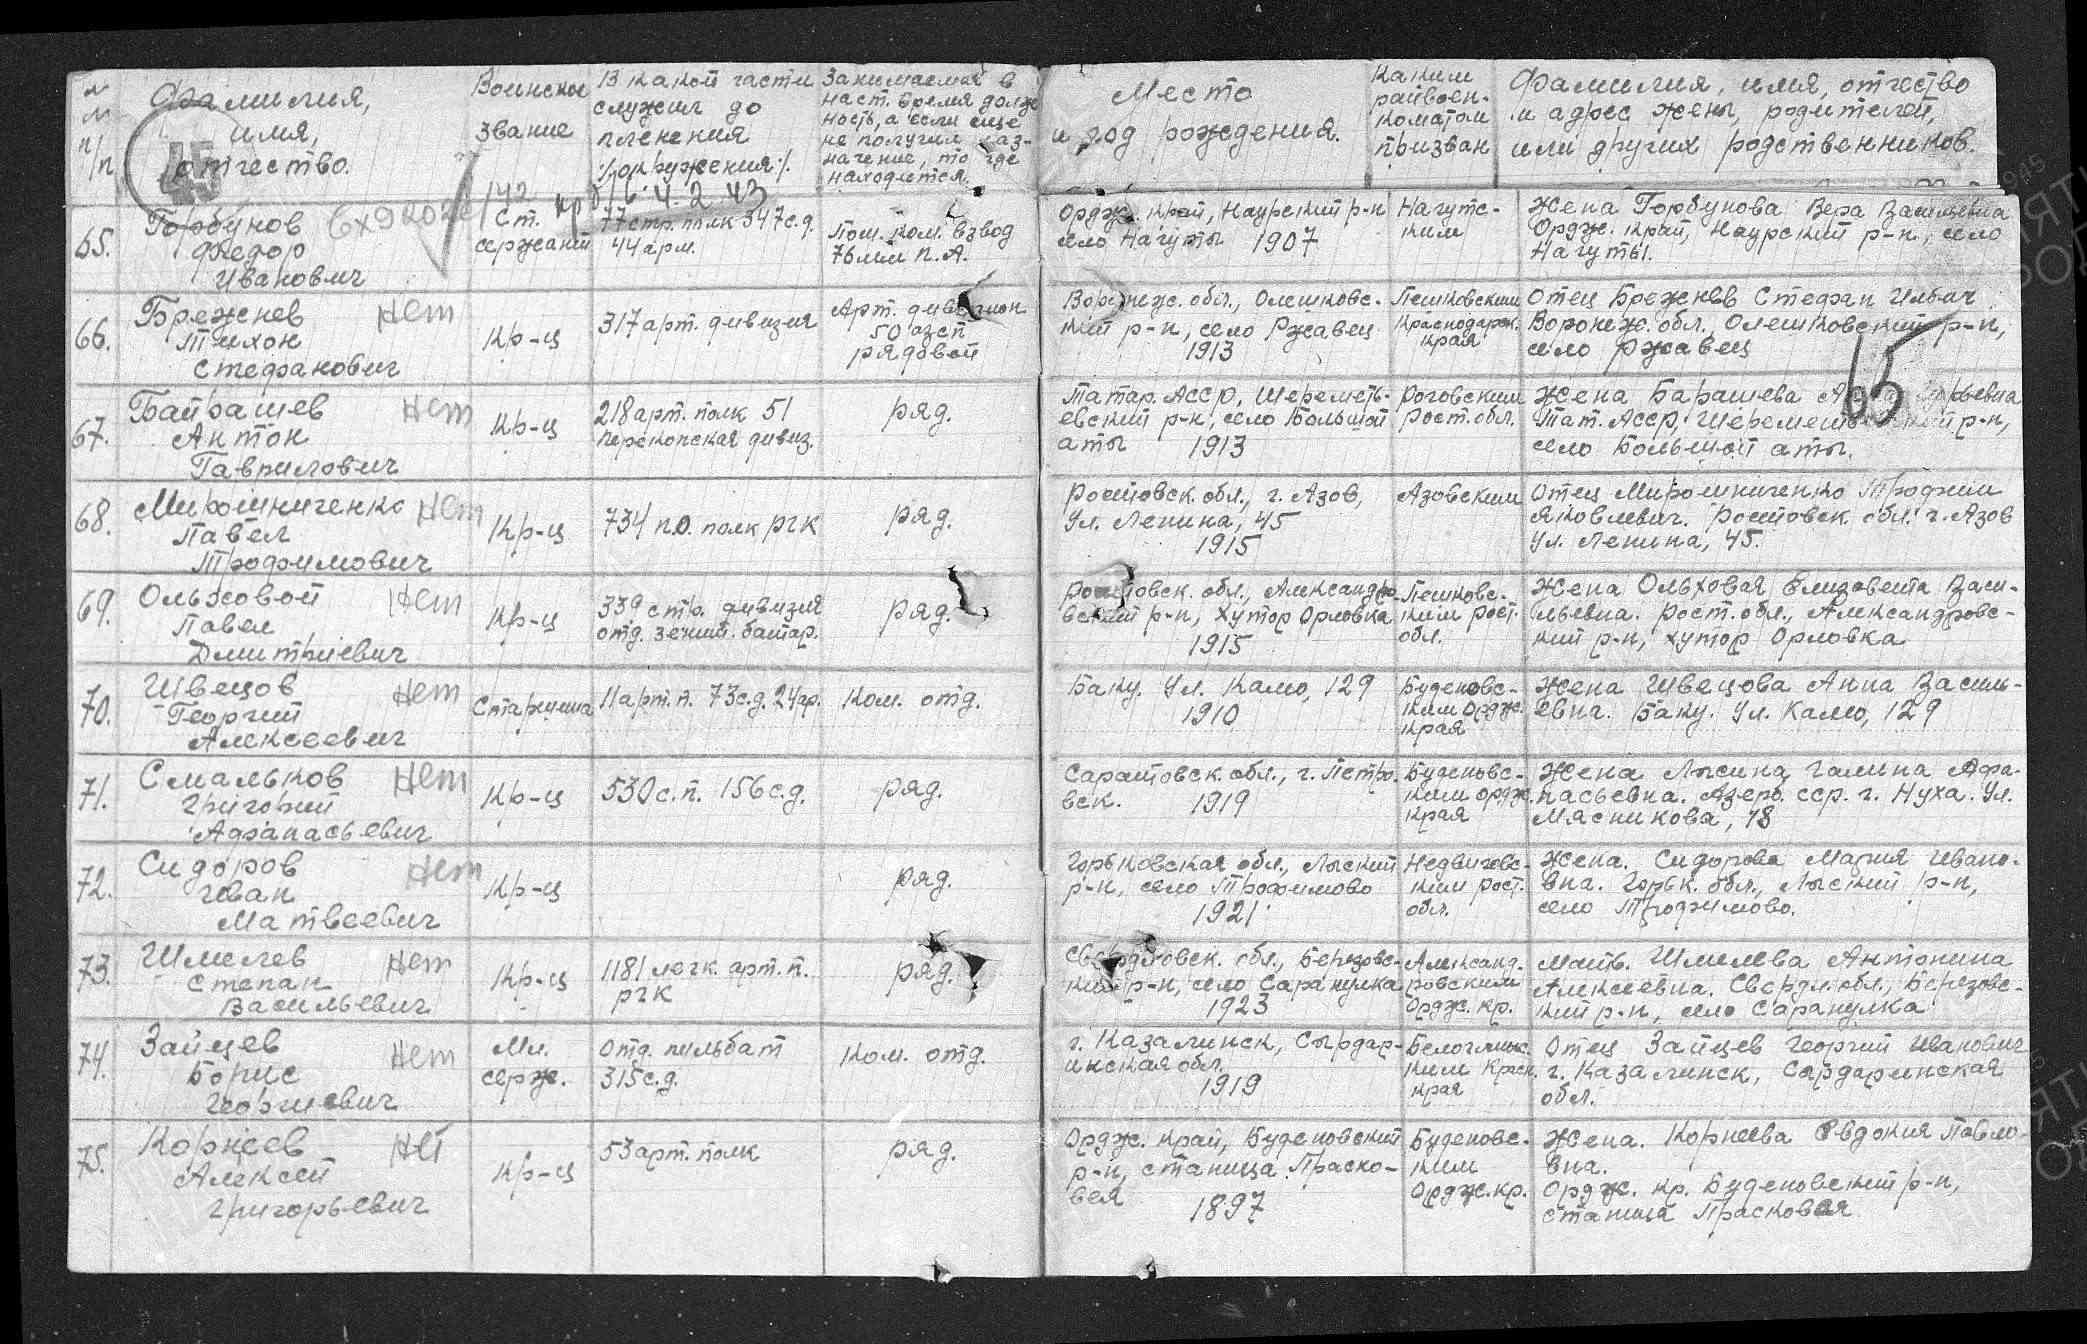 №№ п/п
Фамилия,
имя,
отчество.
45
Воинское
звание
В какой части
служил до
пленения
/окружения/.
Занимаемая в
наст. время долж
ность, а если еще
не получил наз-
начение, то где
находится.
Место
и год рождения.
Каким
райвоен-
коматом
призван
Фамилия, имя, отчество
и адрес жены, родителей,
или других родственников.
4.2.43
65.
Горбунов
Федор
Иванович
Ст.
сержант
77 стр. полк 347 с.д.
44 арм.
Пом. ком. взвод
76 мм п.А.
Ордж. край, Наурский р-н
село Нагуты 1907
Нагутс-
ким
Жена Горбунова Вера Васильевна
Ордж. край, Наурский р-н, село
Нагуты.
66.
Брежнев
Тихон
Стефанович
Нет
Кр-ц
317 арт. дивизия
Арт. дивизион
50 азсп
рядовой
Воронеж. обл., Олешковс-
кий р-н, село Ржавец
1913
Пешковским
Краснодарск.
края
Отец Брежнев Стефан Ильич
Воронеж. обл., Олешковский р-н,
село Ржавец
65
67.
Байрашев
Антон
Гаврилович
Нет
Кр-ц
218 арт. полк 51
перекопская дивиз.
ряд.
Татар. АССР, Шереметь-
евский р-н, село Большой
аты 1913
Роговским
Рост. обл.
Жена Барашева
Тат. АССР, р-н,
село Большой аты.
68.
Мирошниченко
Павел
Трофимович
Нет
Кр-ц
734 п.о. полк РГК
ряд.
Ростовск. обл., г. Азов,
ул. Ленина, 45
1915
Азовским
Отец Мирошниченко Трофим
Яковлевич. Ростовск. обл. г. Азов
ул. Ленина, 45.
69.
Ольховой
Павел
Дмитриевич
Нет
Кр-ц
339 стр. дивизия
отд. зенит. батар.
ряд.
Ростовск. обл., Александро
вский р-н, хутор Орловка
1915
Пешковс-
ким Рост.
обл.
Жена Ольховая Елизавета Васи-
льевна. Рост. обл., Александровс-
кий р-н, хутор Орловка
70.
Швецов
Георгий
Алексеевич
Нет
Старшина
11 арт. п. 73 с.д. 24 ар.
Ком. отд.
Баку. Ул. Камо, 129
1910
Буденовс-
ким Ордж.
края
Жена Швецова Анна Василь-
евна. Баку. Ул. Камо, 129
71.
Смальков
Григорий
Афанасьевич
Нет
Кр-ц
530 с.п. 156 с.д.
ряд.
Саратовск. обл., г. Петро.
вск. 1919
Буденовс-
ким Ордж.
края
Жена Лысина Галина Афа-
насьевна. Азерб. ССР. г. Нуха. Ул.
Мясникова, 18
72.
Сидоров
Иван
Матвеевич
Нет
Кр-ц
ряд.
Горьковская обл., Лыский
р-н, село Трофимово
1921
Недвиговс-
ким Рост.
обл.
Жена. Сидорова Мария Ивано-
вна. Горьк. обл., Лыский р-н,
село Трофимово.
73.
Шмелев
Степан
Васильевич
Нет
Кр-ц
1181 легк. арт. п.
РГК
ряд.
Свердловск. обл., Березовс-
кий р-н, село Сарапулка
1923
Александ-
ровским
Ордж. кр.
Мать. Шмелева Антонина
Алексеевна. Свердл. обл., Березовс-
кий р-н, село Сарапулка
74.
Зайцев
Борис
Георгиевич
Нет
Мл.
серж.
Отд. пульбат
315 с.д.
Ком. отд.
г. Казалинск, Сырдар-
инская обл.
1919
Белоглинс.
ким Красн.
края
Отец Зайцев Георгий Иванович
г. Казалинск, Сырдаринская
обл.
75.
Корнеев
Алексей
Григорьевич
Нет
Кр-ц
53 арт. полк
ряд.
Ордж. край, Буденовский
р-н, станица Праско-
вея 1897
Буденовс-
ким
Ордж. кр.
Жена. Корнеева Евдокия Павло-
вна.
Ордж. кр. Буденовский р-н,
станица Прасковея